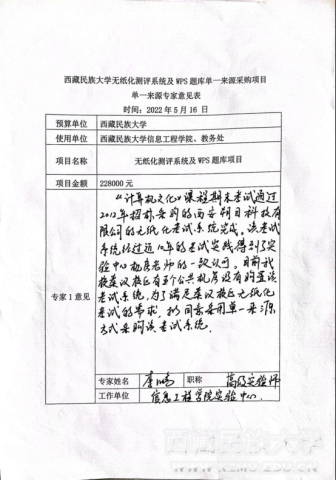 西藏民族大学无纸化测评系统及WPS题库单一来源采购项目
单一来源专家意见表
时间：2022年5月16日
预算单位 西藏民族大学
使用单位 西藏民族大学信息工程学院、教务处
项目名称 无纸化测评系统及WPS题库项目
项目金额 228000元
专家1意见
《计算机文化》课程期末考试通过
2012年招标采购的西安朔日科技有
限公司的无纸化考试系统完成。该考试
系统经过近10年的考试实践得到了实
验中心机房老师的一致认可。目前我
校秦汉校区有五个公共机房没有购置该
考试系统，为了满足秦汉校区无纸化
考试的需求，拟同意采用单一来源
方式采购该考试系统。
专家姓名 李 职称 高级实验师
工作单位 信息工程学院实验中心
西藏民族大学